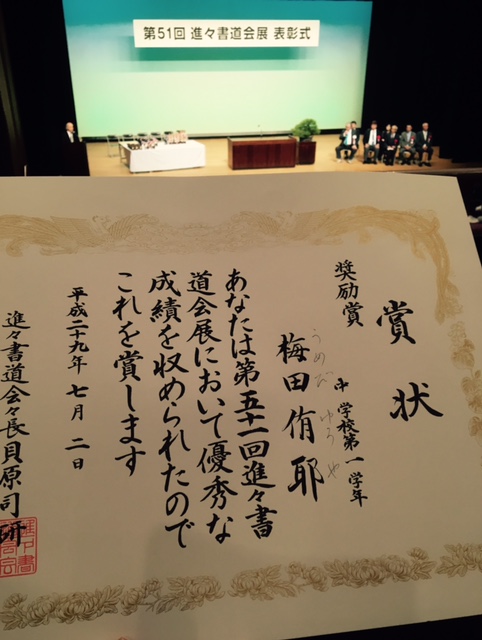 第51回 進々書道会展 表彰式
賞状
奨励賞
中学校第一学年
梅田侑耶
うめだ ゆうや
あなたは第五十一回進々書
道会展において優秀な
成績を収められたので
これを賞します
平成二十九年 七月 二日
進々書道会々長貝原司研